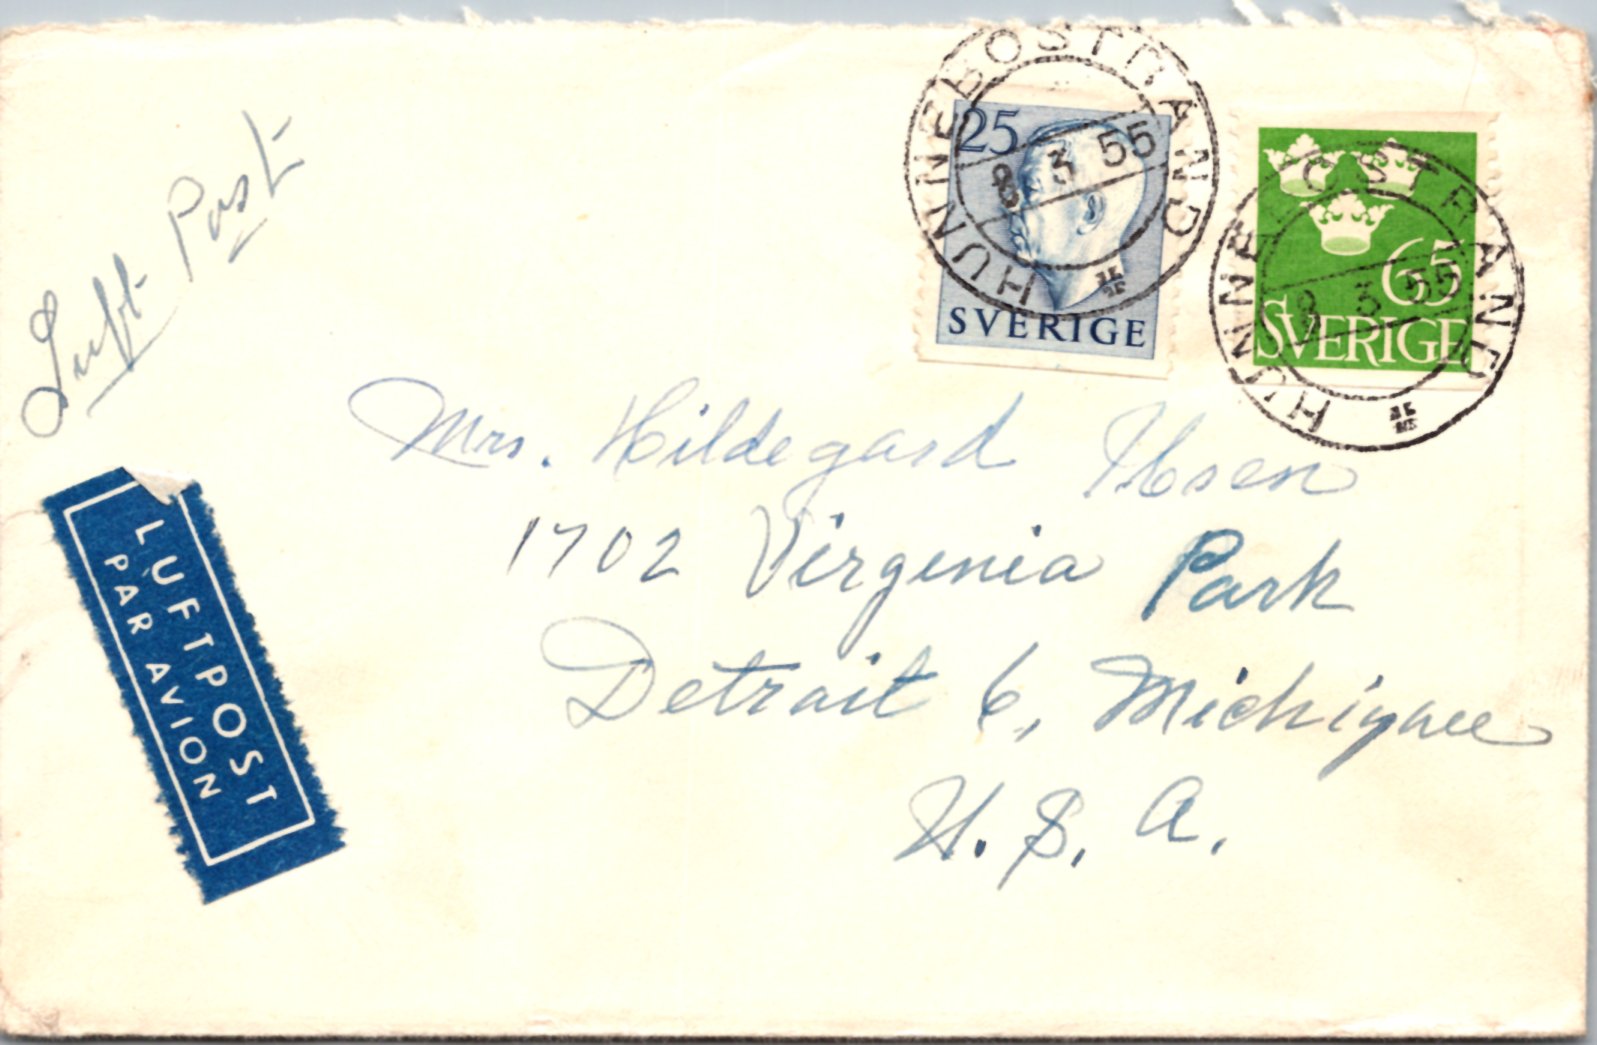 HUNNEBOSTRAND
8 3 55
25
SVERIGE
HUNNEBOSTRAND
8 3 55
65
SVERIGE
Luft Post
LUFTPOST
PAR AVION
Mrs. Hildegard Ibsen
1702 Virginia Park
Detroit 6, Michigan
U. S. A.